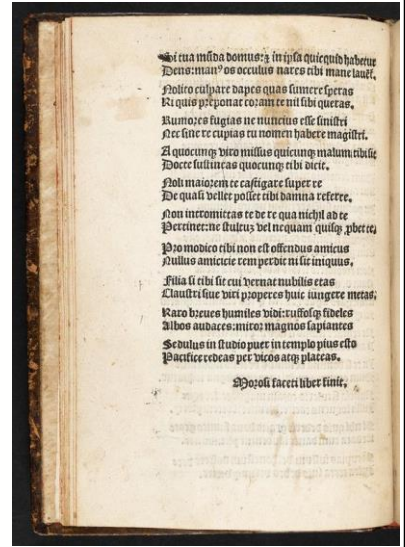 Si tua mūda domus:⁊ in ipsa quicquid habetur
Dens:manꝰ os occulus nares tibi mane lauēt.
Nolito culpare dapes quas sumere speras
Ri quis preponat coram te nil sibi queras.
Rumores fugias ne nuncius esse sinistri
Nec sine re cupias tu nomen habere magistri.
A quocunqꝫ viro missus quicunqꝫ malum tibi sit
Docte sustineas quocunqꝫ tibi dicit.
Noli maiorem te castigare super re
De quasi vellet posset tibi damna referre.
Non intromittas te de re qua nichil ad te
Pertinet:ne stultus vel nequam quisqꝫ ꝓbet te.
Pro modico tibi non est offendus amicus
Nullus amicicie rem perdit ni sit iniquus.
Filia si tibi sit cui vernat nubilis etas
Claustri siue viri properes huic iungere metas.
Raro breues humiles vidi:ruffosqꝫ fideles
Albos audaces:miror magnos sapiantes
Sedulus in studio puer in templo pius esto
Pacifice redeas per vicos atqꝫ plateas.
Morosi faceti liber finit.